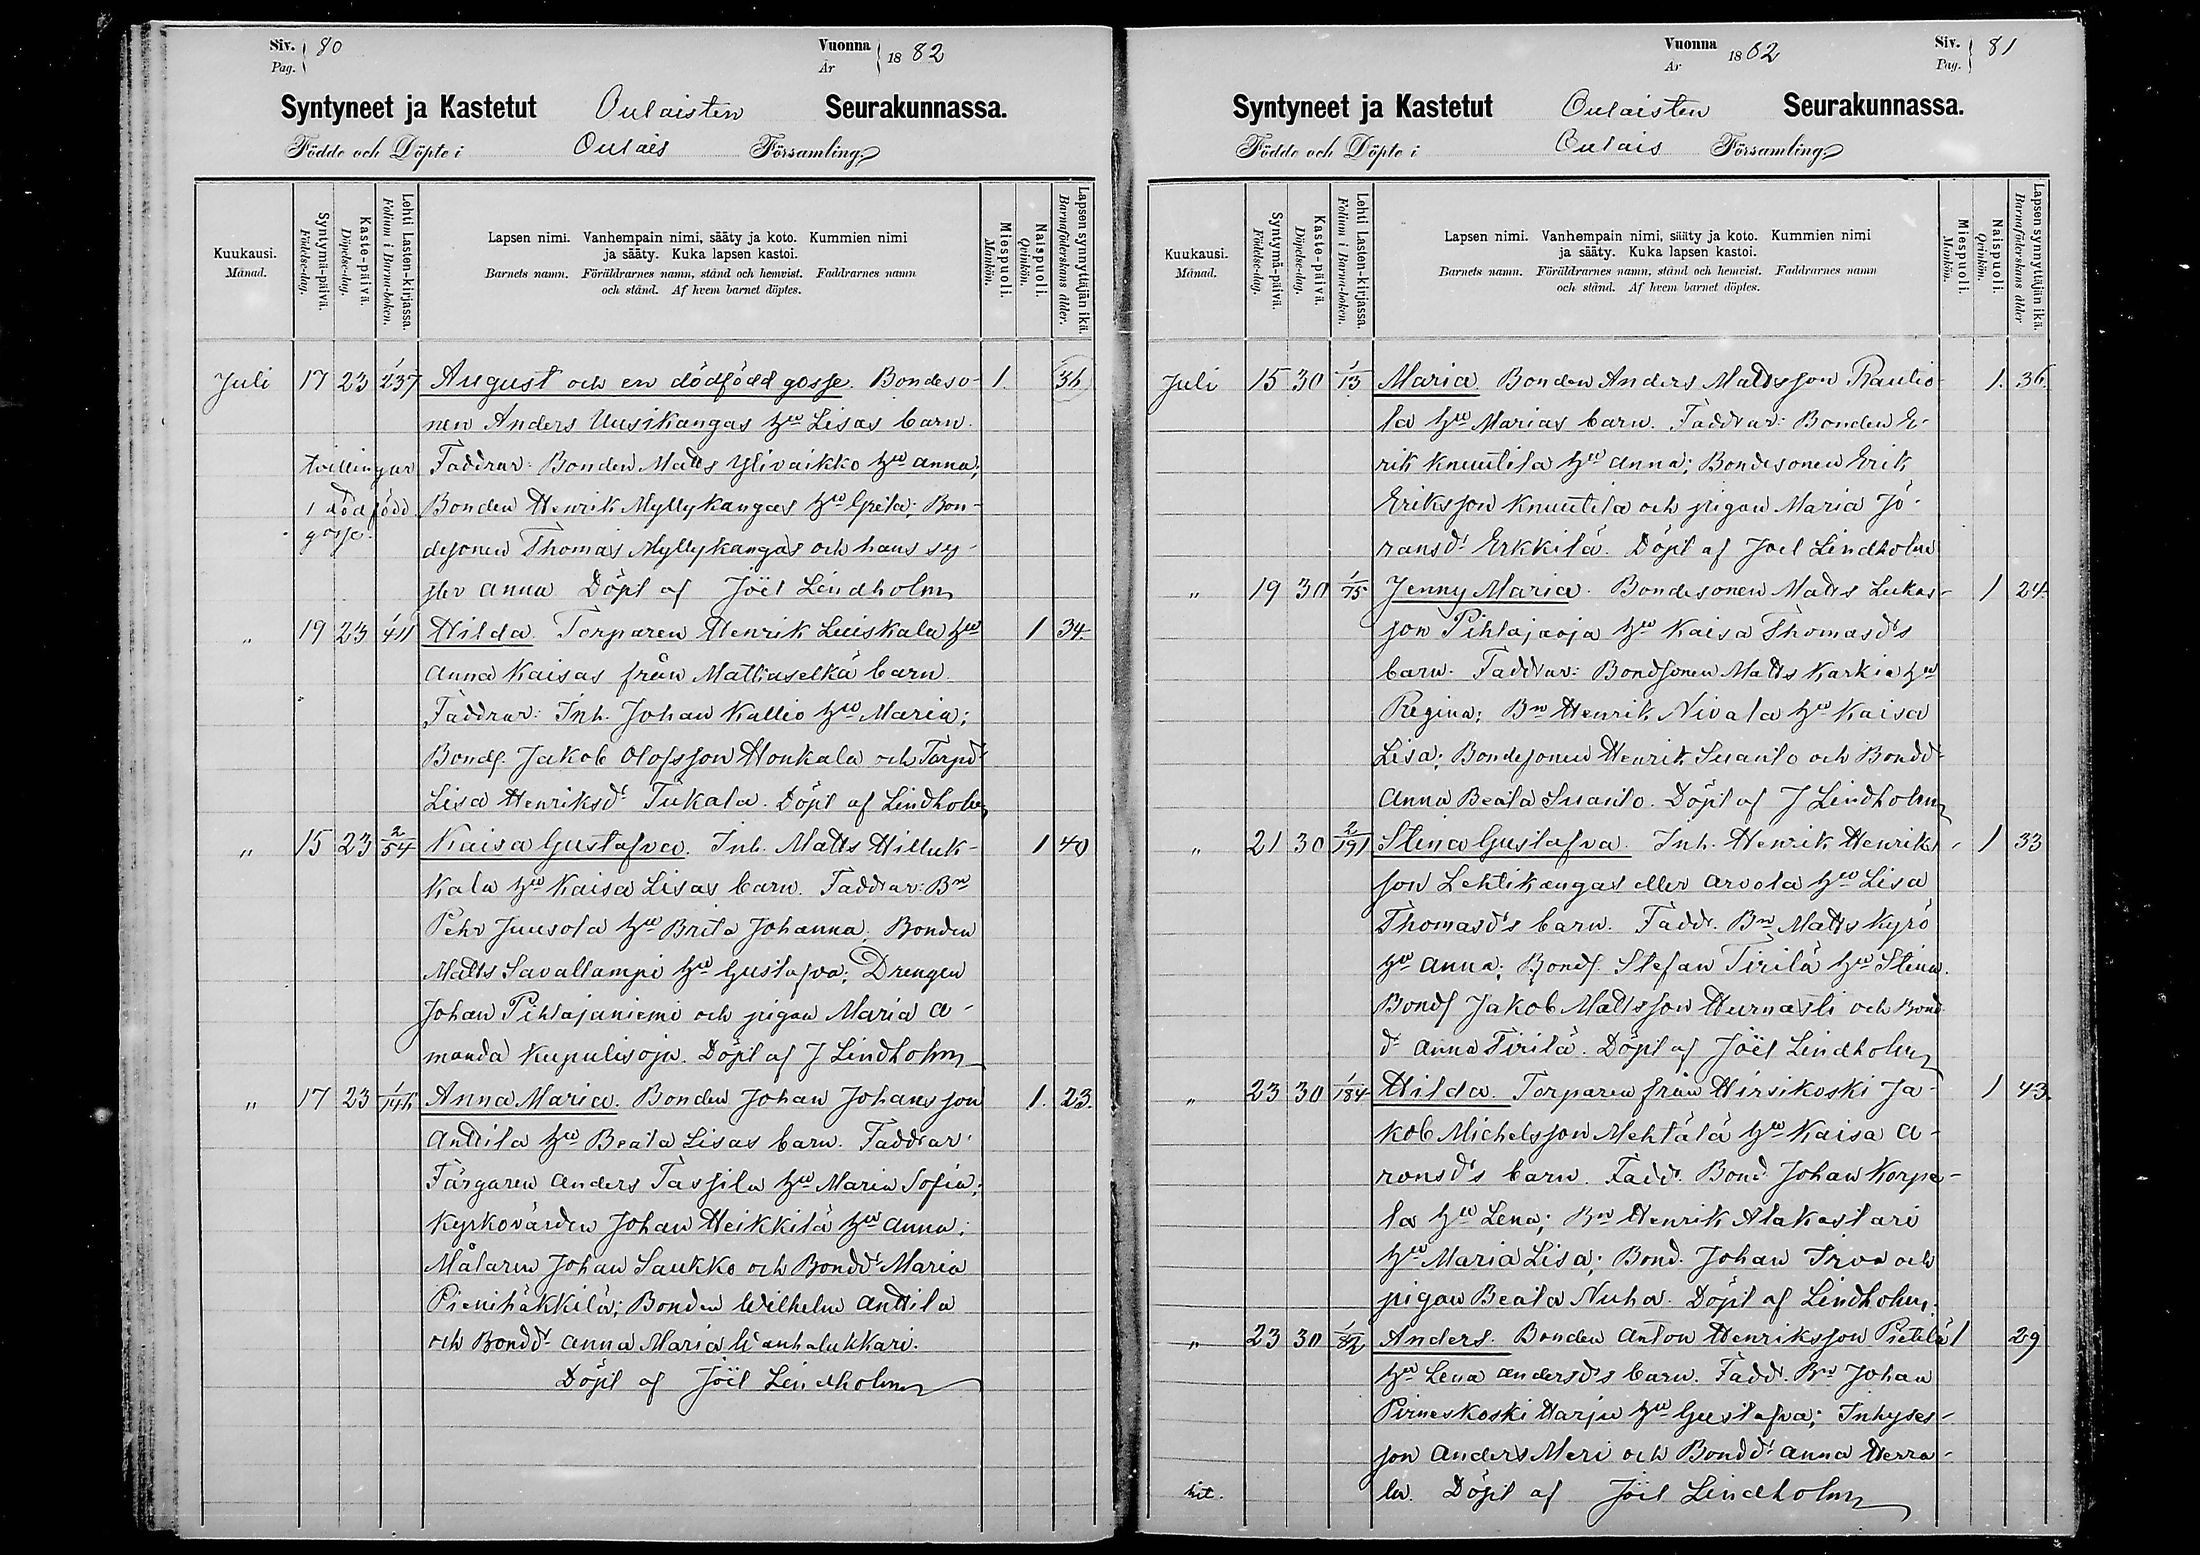 Siv. 80
Pag.
Vuonna 1882
År
Syntyneet ja Kastetut Oulaisten Seurakunnassa.
Födde och Döpte i Oulais Församling
Kuukausi. Månad.
Syntymä-päivä. Födelse-dag.
Kaste-päivä. Döpelse-dag.
Lehti Lasten-kirjassa. Folium i Barna-boken.
Lapsen nimi. Vanhempain nimi, sääty ja koto. Kummien nimi
ja sääty. Kuka lapsen kastoi.
Barnets namn. Föräldrarnes namn, stånd och hemvist. Faddrarnes namn
och stånd. Af hvem barnet döptes.
Miespuoli. Mankön.
Naispuoli. Qvinkön.
Lapsen synnyttäjän ikä. Barnaföderskans ålder.
Juli 17 23 1/237 August och en dödfödd gosse. Bondeso- 1. 36
nen Anders Uusikangas hu Lisas barn.
tvillingar Faddrar: Bonden Matts Ylivaikko hu Anna;
1 dödfödd Bonden Henrik Myllykangas hu Greta; Bon-
gosse. desonen Thomas Myllykangas och hans sy-
ster Anna Döpt af Joël Lindholm
" 19 23 1/411 Hilda. Torparen Henrik Luiskala hu 1 34
Anna Kaisas från Mattinselkä barn
Faddrar: Inh. Johan Kallio hu Maria;
Bonds. Jakob Olofsson Honkala och Torpd
Lisa Henriksdr Tukala. Döpt af Lindholm
" 15 23 2/54 Kaisa Gustafva. Inh. Matts Hilluk- 1 40
kala hu Kaisa Lisas barn. Faddrar: Bn
Pehr Juusola hu Brita Johanna; Bonden
Matts Savallampi hu Gustafva; Drengen
Johan Pihlajaniemi och pigan Maria A-
manda Kupulisoja. Döpt af J Lindholm
" 17 23 1/146 Anna Maria. Bonden Johan Johansson 1. 23.
Anttila hu Beata Lisas barn. Faddrar:
Färgaren Anders Tassila hu Maria Sofia;
Kyrkovärden Johan Heikkilä hu Anna;
Målaren Johan Saukko och Bonddr Maria
Pienihäkkilä; Bonden Wilhelm Anttila
och Bonddr Anna Maria Wanhalukkari.
Döpt af Joël Lindholm
Vuonna 1882
År
Siv. 81
Pag.
Syntyneet ja Kastetut Oulaisten Seurakunnassa.
Födde och Döpte i Oulais Församling
Kuukausi. Månad.
Syntymä-päivä. Födelse-dag.
Kaste-päivä. Döpelse-dag.
Lehti Lasten-kirjassa. Folium i Barna-boken.
Lapsen nimi. Vanhempain nimi, sääty ja koto. Kummien nimi
ja sääty. Kuka lapsen kastoi.
Barnets namn. Föräldrarnes namn, stånd och hemvist. Faddrarnes namn
och stånd. Af hvem barnet döptes.
Miespuoli. Mankön.
Naispuoli. Qvinkön.
Lapsen synnyttäjän ikä. Barnaföderskans ålder
Juli 15 30 1/13 Maria Bonden Anders Mattsson Rautio- 1. 36.
la hu Marias barn. Faddrar: Bonden E-
rik Knuutila hu Anna; Bondesonen Erik
Eriksson Knuutila och pigan Maria Jö-
ransdr Erkkilä. Döpt af Joel Lindholm
" 19 30 1/75 Jenny Maria. Bondesonen Matts Lukas- 1 24
son Pihlajaoja hu Kaisa Thomasdrs
barn. Faddrar: Bondsonen Matts Karkia hu
Regina; Bn Henrik Nivala hu Kaisa
Lisa; Bondesonen Henrik Suanto och Bondd
Anna Beata Suanto. Döpt af J Lindholm
" 21 30 2/191 Stina Gustafva. Inh. Henrik Henriks- 1 33
son Lehtikangas eller Arvola hu Lisa
Thomasdrs barn. Faddr. Bn Matts Kyrö
hu Anna; Bonds. Stefan Tirilä hu Stina.
Bonds Jakob Mattsson Hurnasti och Bond
dr Anna Tirilä. Döpt af Joël Lindholm
" 23 30 1/184 Hilda. Torparen från Hirsikoski Ja- 1 43.
kob Michelsson Mehtälä hu Kaisa A-
ronsdrs barn. Fadd. Bond Johan Korpe-
la hu Lena; Bn Henrik Alakastari
hu Maria Lisa; Bond. Johan Irva och
pigan Beata Nuha. Döpt af Lindholm.
" 23 30 1/82 Anders. Bonden Anton Henriksson Pietilä 1 29
hu Lena Andersdrs barn. Fadd. Bn Johan
Pirneskoski Harju hu Gustafva; Inhyses-
son Anders Meri och Bonddr Anna Herra-
hit. la. Döpt af Joël Lindholm